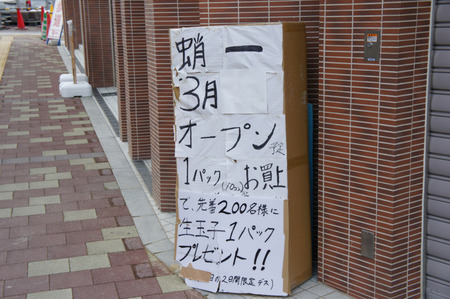 蛸一
3月
オープン予定
1パック(10コ)にお買上
で、先着200名様に
生玉子1パック
プレゼント!!
日か2日間限定デス)